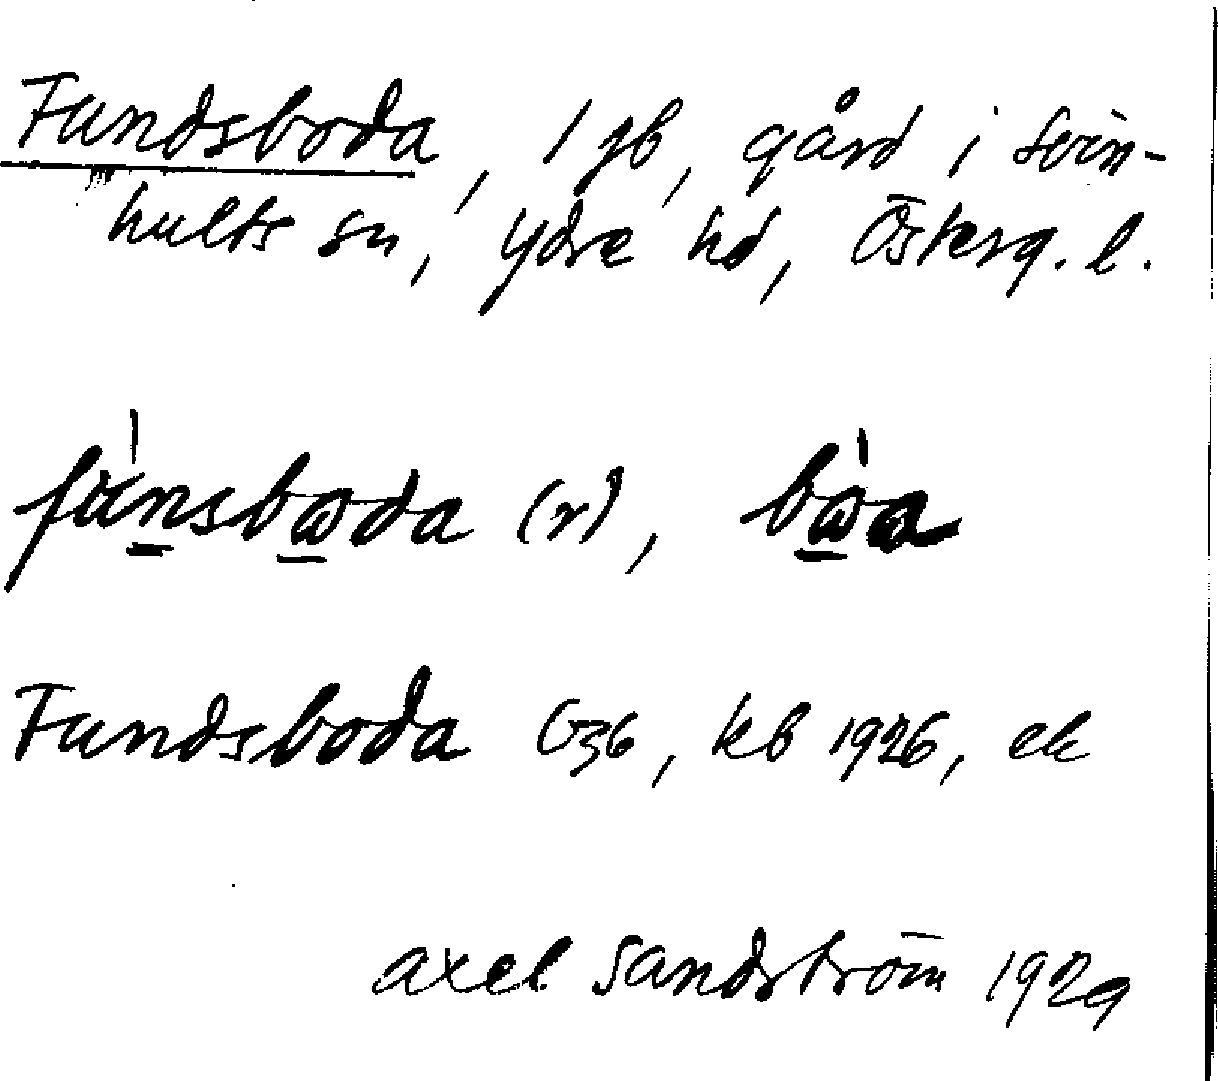 Fundsboda, 1 jb, gård i Svin-
hults sn, Ydre hd, Österg. l.
fùnsboda (r), bòa
Fundsboda G36, kb 1926, ek
Axel Sandström 1929